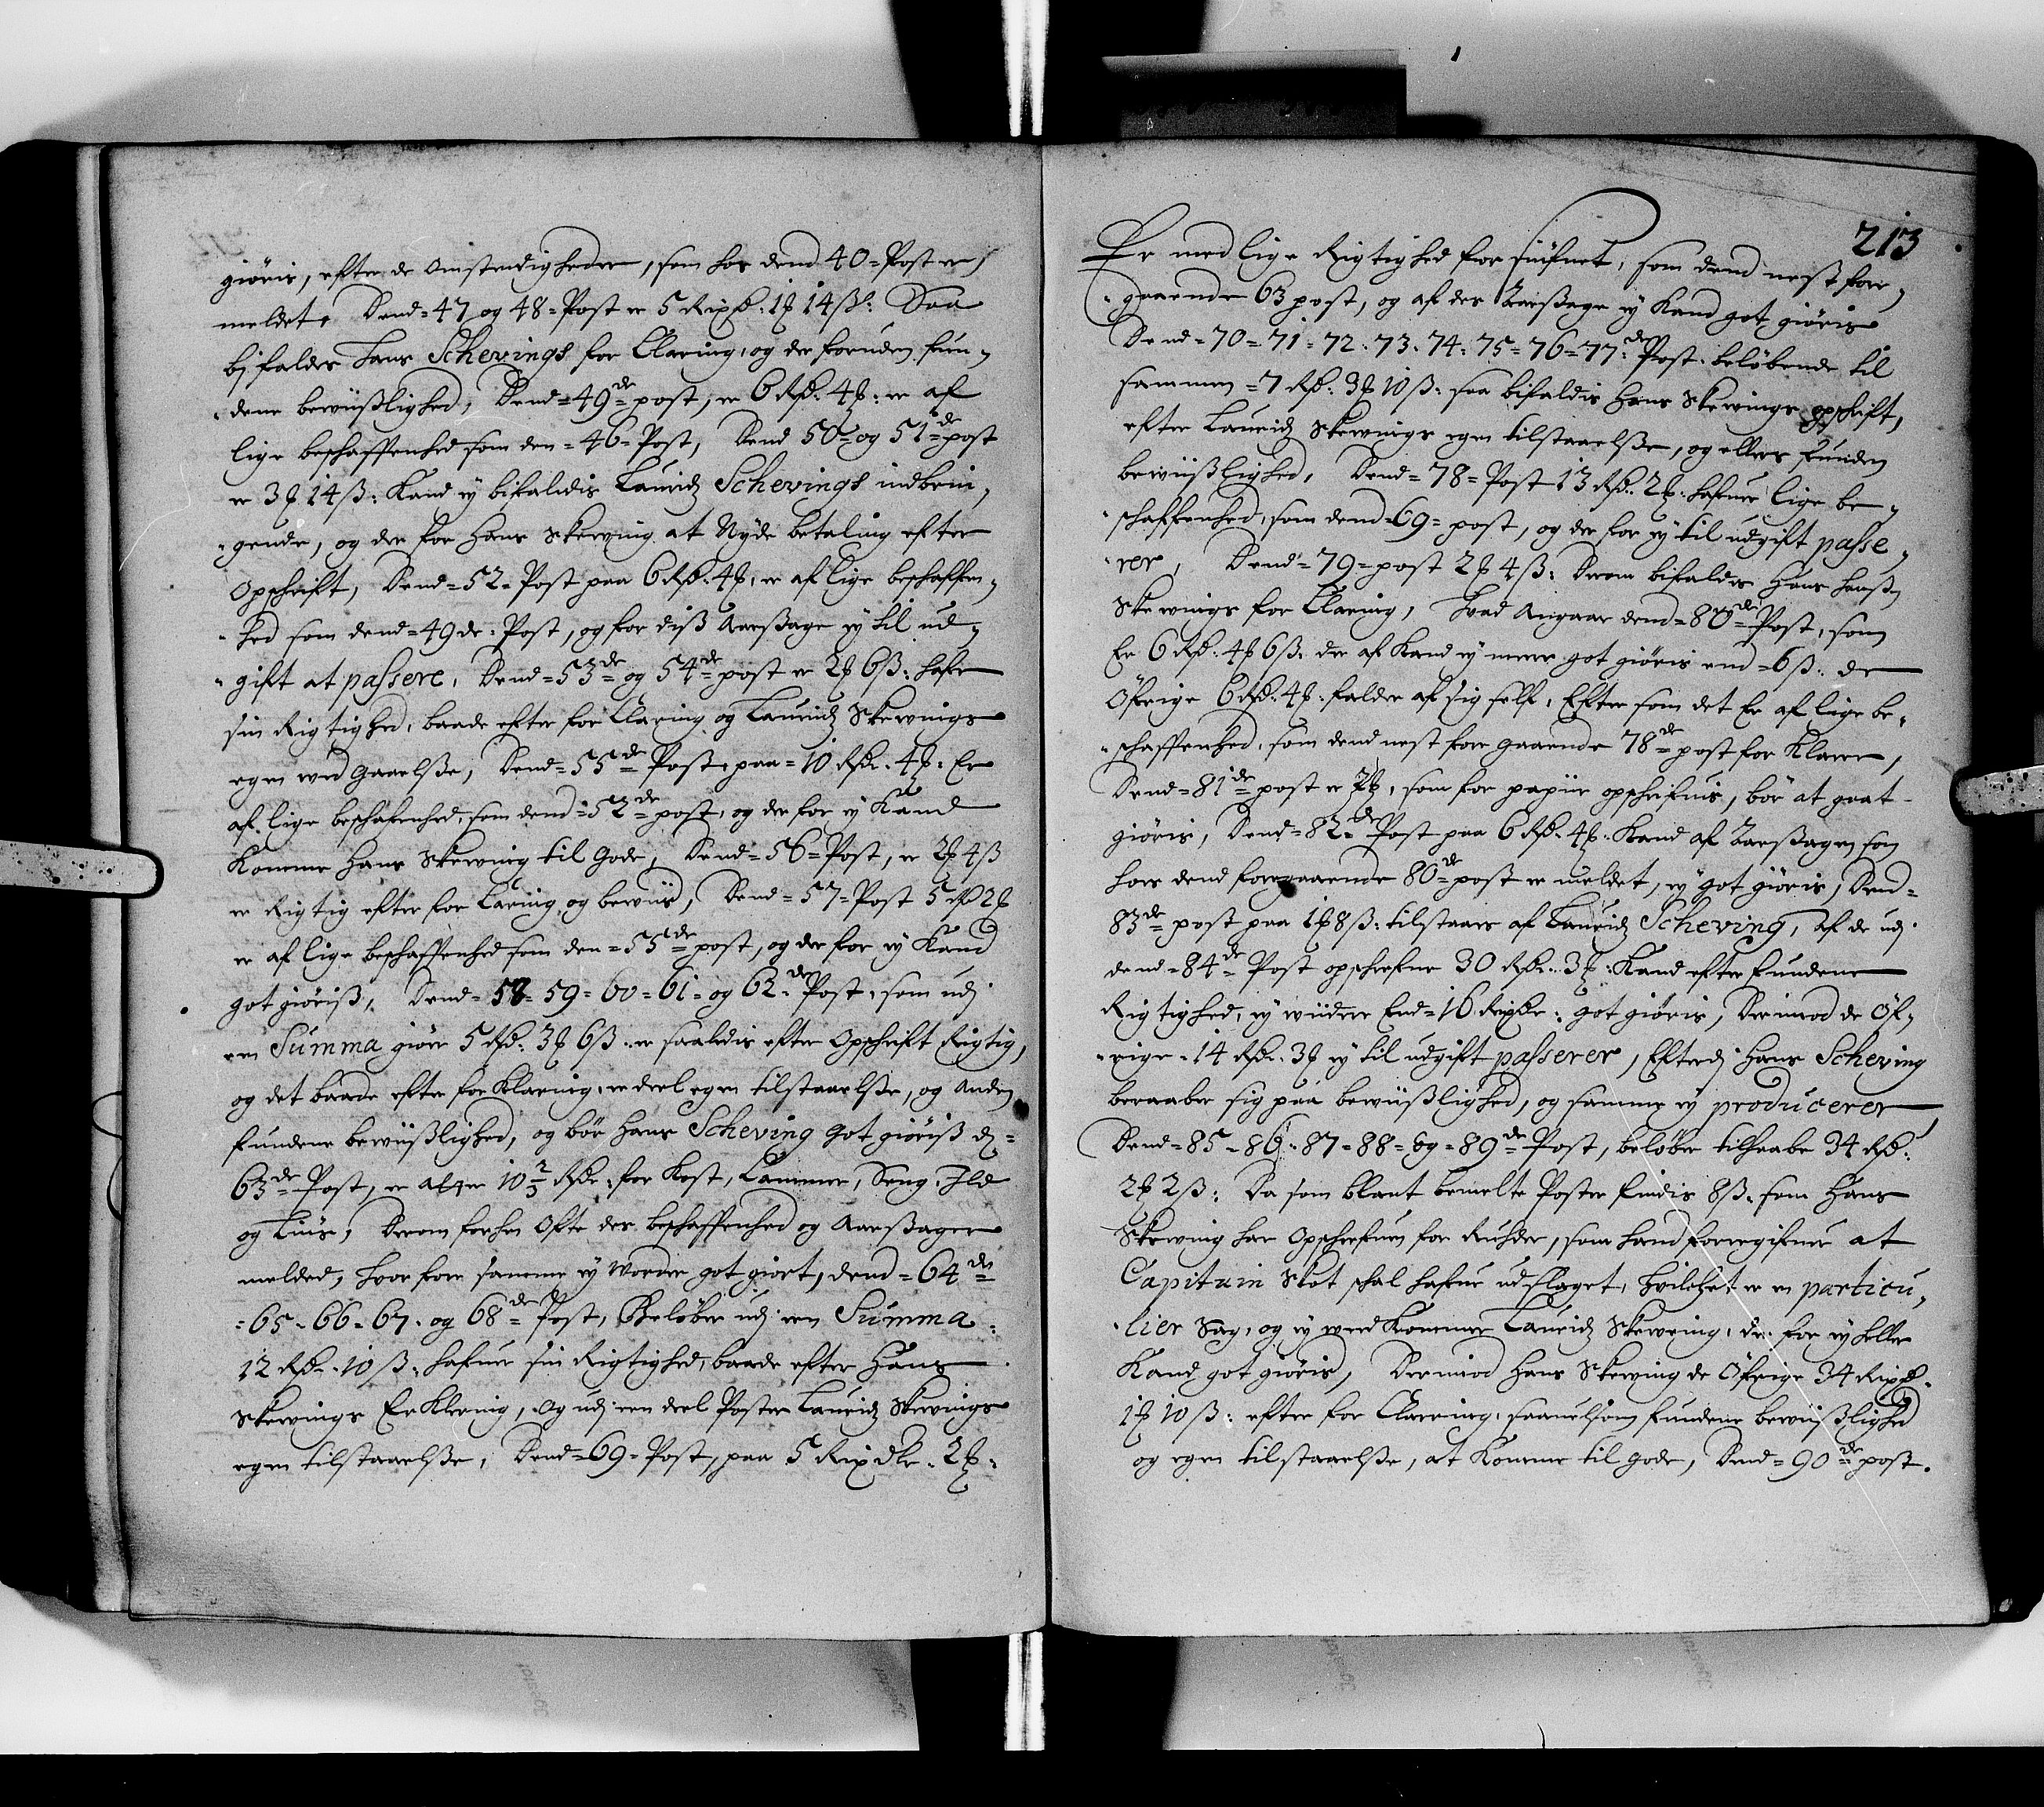 giöris, efter de Omstendigheder, som hos dend 40 = Post er,
meldet. Dend = 47 og 48 = Post er 5 Rixd: 1 ₰ 14 ß: Saa
bifaldes Hans Schevings for Claring, og der foruden fun,
dene bewiißlighed, Dend = 49de post, er 6 Rd: 4 ₰: er af
lige beschaffenhed som den = 46 = Post, Dend 50 = og 51de = post
er 3 ₰ 14 ß: Kand ey bifaldis Lauridz Schevings indbrin,
gende, og der for Hans Skewing at Nyde betaling efter
Opschrift, Dend = 52 = Post paa 6 Rd: 4 ₰, er af lige beschaffen,
hed som dend = 49 de: Post, og for diß Aarßage ey til ud,
gift at passere. Dend = 53de og 54de post er 2 ₰ 6 ß: hafr
sin Rigtighed, baade efter for Claring og Lauridz Skewings
egen wed gaaelße, Dend = 55de Post, paa = 10 Rdr. 4 ₰. Er
af lige beschafenhed, som dend = 52de post, og der for ey Kand
Komme Hans Skewing til Gode, Dend = 56 = Post, er 2 ₰ 4 ß
er Rigtig efter for Claring og bewiis, Dend = 57 = Post 5 Rd 2 ₰
er af lige beschaffenhed som den = 55de post, og der for ey Kand
got giöriß, Dend = 58 = 59 = 60 = 61 = og 62de Post, som udj
een Summa giör 5 Rd: 3 ₰ 6 ß: er saaledis efter Opschrift Rigtig,
og det baade efter for Klaring, en deel egen tilstaaelße, og Anden
fundene bewiißlighed, og bör Hans Scheving got giöriß d
63de Post, er atter 10 2/3 Rdr. for Kost, Cammer, Seng, Ild
og Liuß, Derom forhen Ofte des beschaffenhed og Aarßager
melded, hvor fore samme ey Worder got giort, dend = 64de
= 65 = 66 = 67 = og 68de Post, Belöber udj een Summa
12 Rdr. 10 ß: hafuer sin Rigtighed, baade efter Hans
Skewings Er Klering, Og udj een deel Poster Lauridz Skewings
egen tilstaaelße, Dend = 69 = Post, paa 5 Rixdlr. 2 ₰
213
Er med lige Rigtighed for siufnet, som dend nest fore,
gaaende 63 post, og af des Aarßage ey Kand got giöris
Dend = 70 = 71 = 72 = 73 = 74 = 75 = 76 = 77de Post. belöbende til
sammen = 7 Rd: 3 ₰ 10 ß: saa bifaldis Hans Skewings opschrift,
efter Lauridz Skewings egen tilstaaelße, og ellers funden
bewiißlighed, Dend = 78 = Post 13 Rd: 2 ₰ hafuer lige be,
schaffenhed, som dend = 69 = post, og der for ey til udgift passe,
rer, Dend = 79 = post 2 ₰ 4 ß: Derom bifaldes Hans
Skewings for Claring, hvad Angaar dend = 80de Post, som
Er 6 Rd: 4 ₰ 6 ß: der af Kand ey meere got giöris end = 6 ß: de
Öfrige 6 Rd. 4 ₰. falder af sig self, Efter som det Er af lige be,
schaffenhed, som dend nest fore gaaende 78de post for Klarer,
Dend = 81de post er 2 ₰, som for papiir opschrifuis, bör at goat
giöris, Dend = 82de Post paa 6 Rd. 4 ₰. Kand af Aarßagen som
hoes dend foregaaende 80de post er meldet, ey got giöris, Dend
83de post paa 1 ₰ 8 ß: tilstaaes af Lauridz Scheving, af de udj
dend = 84de Post opschrefne 30 Rdr. 3 ₰: Kand efter fundene
Rigtighed, ey wiidere End = 16 Rixdr: got giöris, Derimod de Öf,
rige = 14 Rdr. 3 ₰ ey til udgift passerer, Efterdj Hans Scheving
beraaber sig paa bewiißlighed, og samme ey producerer
Dend = 85 = 86 = 87 = 88 = og = 89de Post, belöber tilhaabe 34 Rd:
2 ₰ 2 ß: Da som blant bemelte Poster findis 8 ß: som Hans
Skewing har Opschrefuen for Ruhder, som hand foregifuer at
Capitain Skot schal hafue udslaget, hvilchet er en particu,
lier Sag, og ey wed Kommer Lauridz Skewing, der for ey heller
Kand got giöris, Derimod Hans Skewing de Öfrige 34 Rixd.
1 ₰ 10 ß: efter for Claering, saauelsom fundene bewiißlighed
og egen tilstaaelße, at Komme til gode, Dend = 90de post.